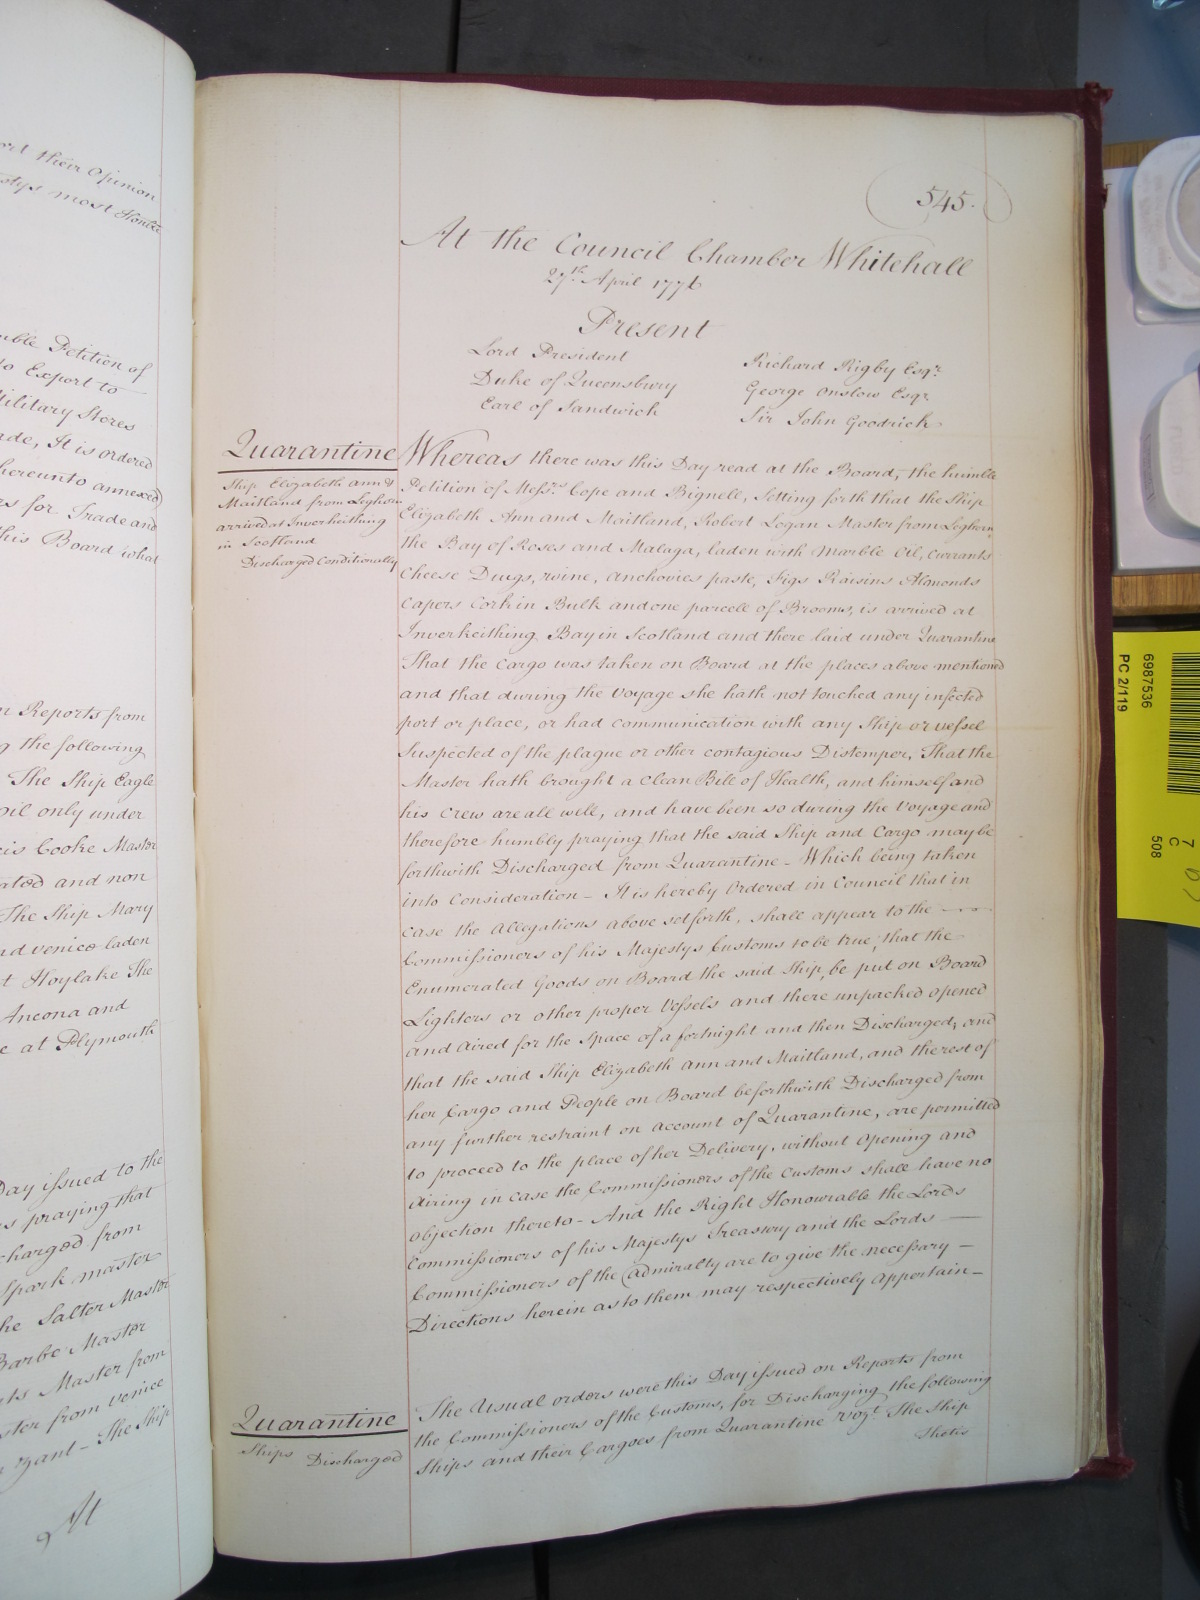 ort their Opinion
stys most Honble
mble Petition of
to Export to
Military Stores
ade, It is ordered
hereunto annexed)
rs for Trade and
this Board what
n Reports from
g the following
The Ship Eagle
oil only under
cis Cooke Master
ated and non
The Ship Mary
nd Venice laden
t Hoylake The
Ancona and
e at Plymouth
Day issued to the
rs praying that
charged from
Spark master
he Salter Master
Barbe Master
ts Master from
ster from Venice
gant - The Ship
At
545.
At the Council Chamber Whitehall
27th April 1776
Present
Lord President
Duke of Queensbury
Earl of Sandwich
Richard Rigby Esqr.
George Onslow Esqr.
Sir John Goodrick
Quarantine
Ship Elizabeth Ann &
Maitland from Leghorn
arrived at Inverkeithing
in Scotland
Discharged Conditionally
Whereas there was this Day read at the Board, the humble
Petition of Messrs. Cope and Bignell, Setting forth that the Ship
Elizabeth Ann and Maitland, Robert Logan Master from Leghorn,
the Bay of Roses and Malaga, laden with Marble Oil, Currants
Cheese Drugs, wine, Anchovies paste, Figs Raisins Almonds
Capers Cork in Bulk and one parcell of Brooms, is arrived at
Inverkeithing Bay in Scotland and there laid under Quarantine
That the Cargo was taken on Board at the places above mentioned
and that during the Voyage she hath not touched any infected
port or place, or had communication with any Ship or vessel
Suspected of the plague or other contagious Distemper, That the
Master hath brought a Clean Bill of Health, and himself and
his crew are all well, and have been so during the Voyage and
therefore humbly praying that the said Ship and Cargo may be
forthwith Discharged from Quarantine - Which being taken
into Consideration - It is hereby Ordered in Council that in
case the Allegations above setforth, shall appear to the
Commissioners of his Majestys Customs to be true, that the
Enumerated Goods on Board the said Ship, be put on Board
Lighters or other proper Vessels and there unpacked opened
and Aired for the Space of a fortnight and then Discharged, and
that the said Ship Elizabeth Ann and Maitland, and the rest of
her Cargo and People on Board be forthwith Discharged from
any further restraint on account of Quarantine, are permitted
to proceed to the place of her Delivery, without Opening and
Airing in case the Commissioners of the Customs shall have no
objection thereto - And the Right Honourable the Lords
Commissioners of his Majestys Treasury and the Lords —
Commissioners of the Admiralty are to give the necessary —
Directions herein as to them may respectively appertain —
Quarantine
Ships Discharged
The Usual orders were this Day issued on Reports from
the Commissioners of the Customs, for Discharging the following
Ships and their Cargoes from Quarantine vizt. The Ship
Thetis
6987536
PC 2/119
7
C
508